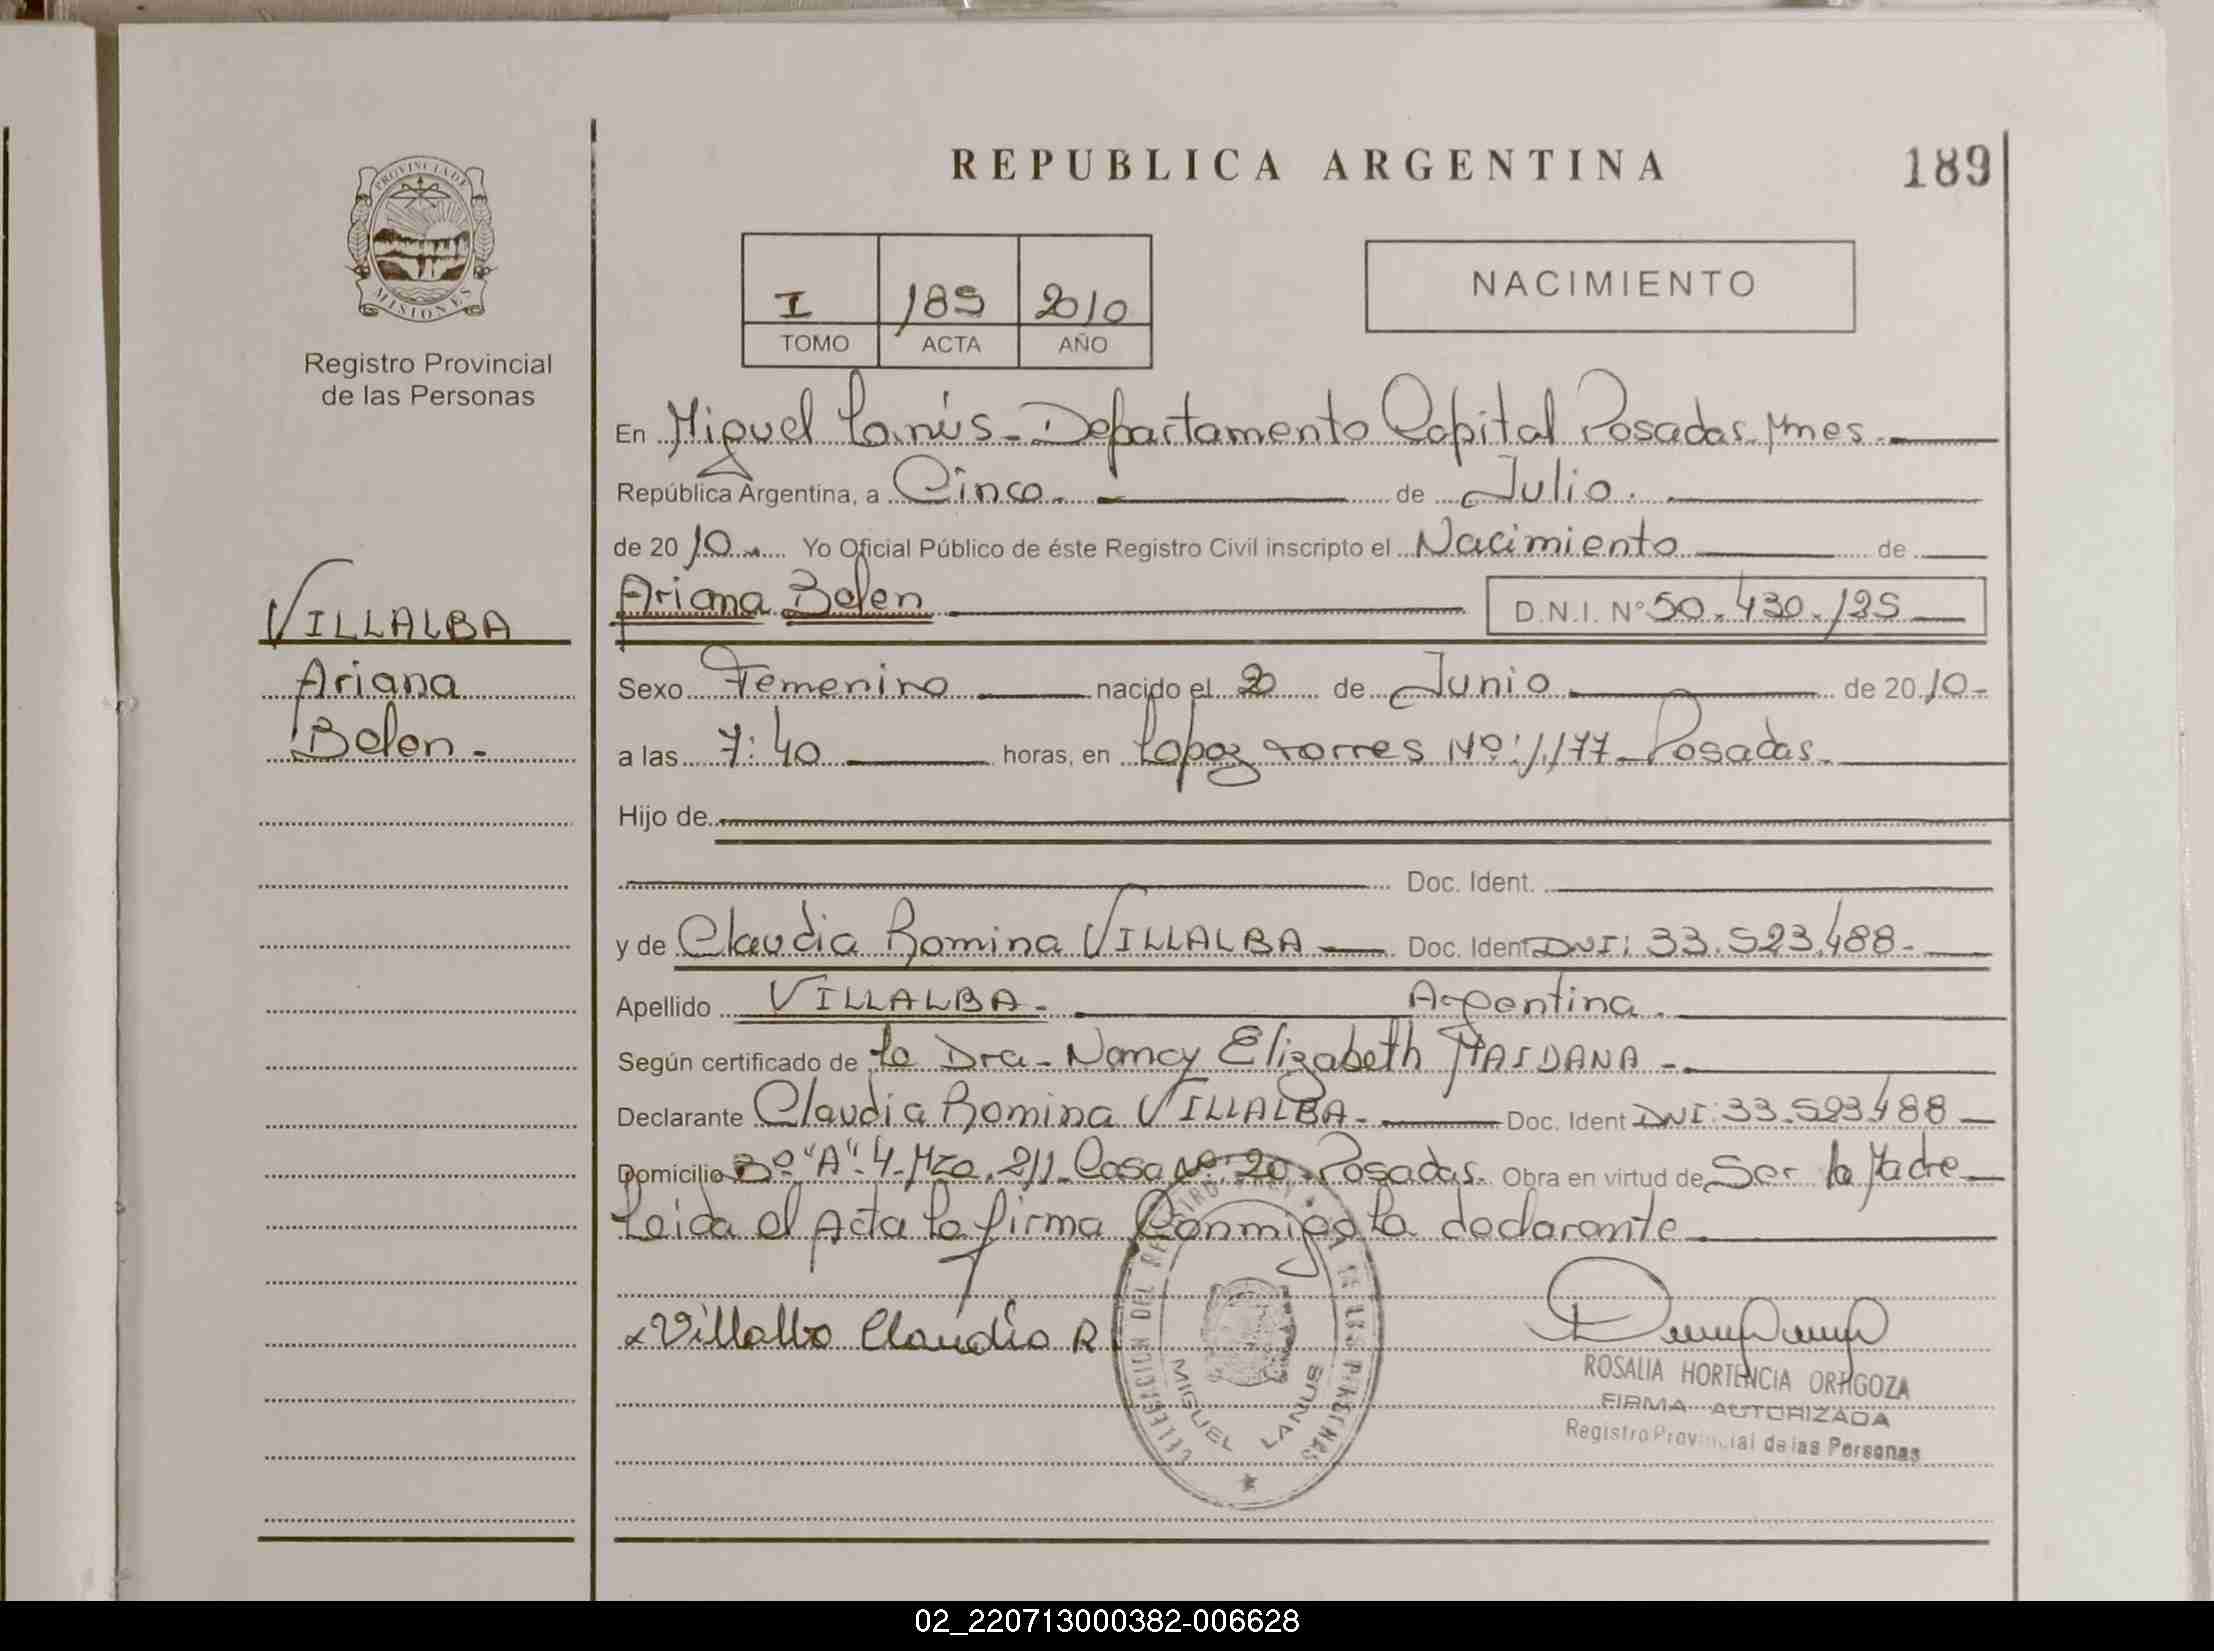 REPUBLICA ARGENTINA
189
PROVINCIA DE
MISIONES
Registro Provincial
de las Personas
I 189 2010
TOMO ACTA AÑO
NACIMIENTO
En Miguel Lanús - Departamento Capital Posadas Mnes.
República Argentina, a Cinco. de Julio.
de 2010 Yo Oficial Público de éste Registro Civil inscripto el Nacimiento de
VILLALBA
Ariana
Belen.-
Ariana Belen D.N.I. Nº 50.430.125
Sexo Femenino nacido el 20 de Junio de 2010-
a las 7:40 horas, en Lopez torres Nº: 1.177- Posadas.
Hijo de
Doc. Ident.
y de Claudia Romina VILLALBA Doc. Ident DNI: 33.523.488-
Apellido VILLALBA.- Argentina.
Según certificado de la Dra- Nancy Elizabeth MAIDANA-
Declarante Claudia Romina VILLALBA- Doc. Ident DNI: 33.523.488
Domicilio Bº "A"-4-Mza. 211- Casa Nº: 20- Posadas. Obra en virtud de Ser la Madre
Leida el Acta la firma Conmigo la declarante
x Villalba Claudia R
MIGUEL LANUS
ROSALIA HORTENCIA ORTIGOZA
FIRMA AUTORIZADA
Registro Provincial de las Personas
02_220713000382-006628